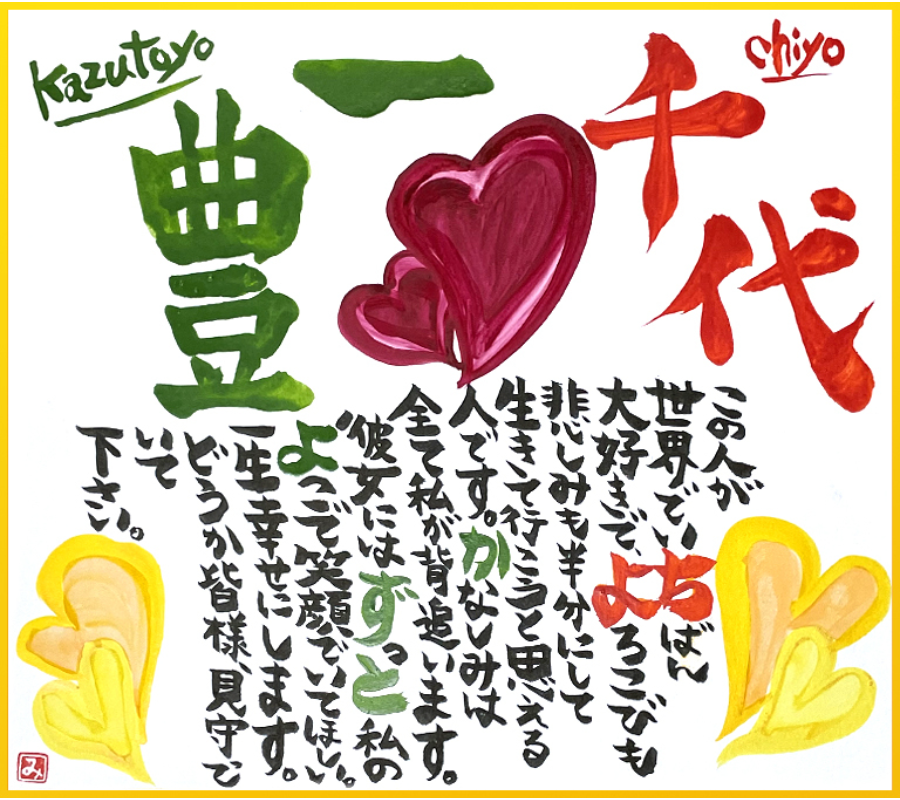 Kazutoyo
一豊
千代
chiyo
この人が
世界でいちばん
大好きで、よろこびも
悲しみも半分にして
生きて行こうと思える
人です。かなしみは
全て私が背追います。
彼女にはずっと私の
よこで笑顔でいてほしい。
一生幸せにします。
どうか皆様、見守で
いて
下さい。
み